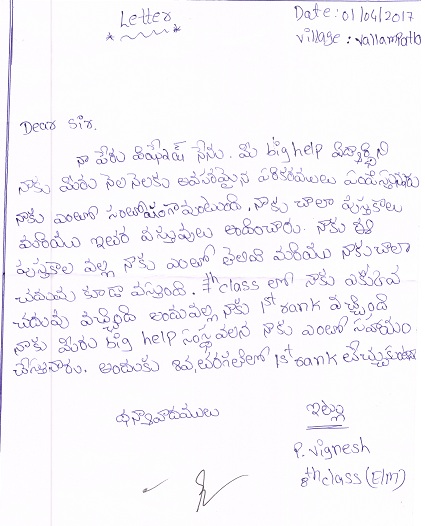 Letter
Date: 01/04/2017
village : vallampatla
Dear Sir.
నా పేరు విఘ్నేష్ నేను. మీ big help విద్యార్థిని
నాకు మీరు నెల నెలకు అవసరమైన పరికరములు పంపిస్తున్నారు
నాకు ఎంతో సంతోషంగా వుంటుంది. నాకు చాలా పుస్తకాలు
మరియు ఇతర వస్తువులు అందించారు. నాకు ఈ
పుస్తకాల వల్ల నాకు ఎంతో తెలివి మరియు నాకు చాలా
చదువు కూడా వస్తుంది. 7th class లో నాకు ఎక్కువ
చదువు వచ్చింది అందువల్ల నాకు 1st rank వచ్చింది
నాకు మీరు big help సంస్థ వలన నాకు ఎంతో సహాయం
చేస్తున్నారు. అందుకు 8వ తరగతిలో 1st rank తెచ్చుకుంటా
ధన్యవాదములు
ఇట్లు
P. vignesh
8th class (E/M)